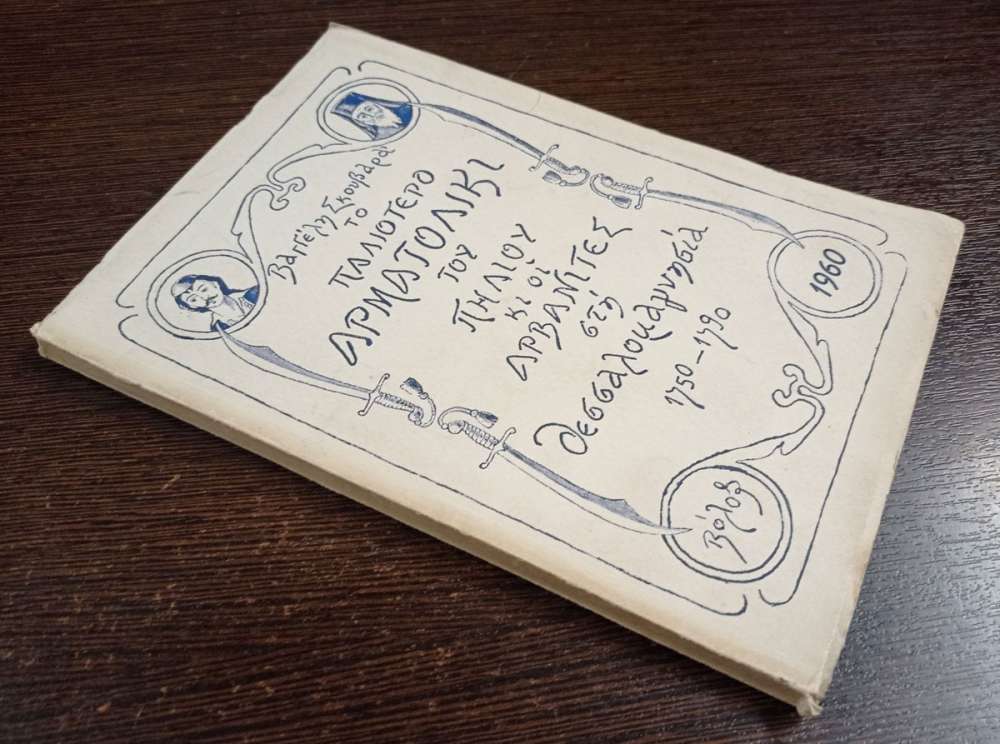 Βαγγέλη Σκουβαρά
ΤΟ
ΠΑΛΙΟΤΕΡΟ
ΑΡΜΑΤΟΛΙΚΙ
ΤΟΥ
ΠΗΛΙΟΥ
ΚΙ ΟΙ
ΑΡΒΑΝΙΤΕΣ
στὴ
Θεσσαλομαγνησία
1750-1790
1960
Βόλος